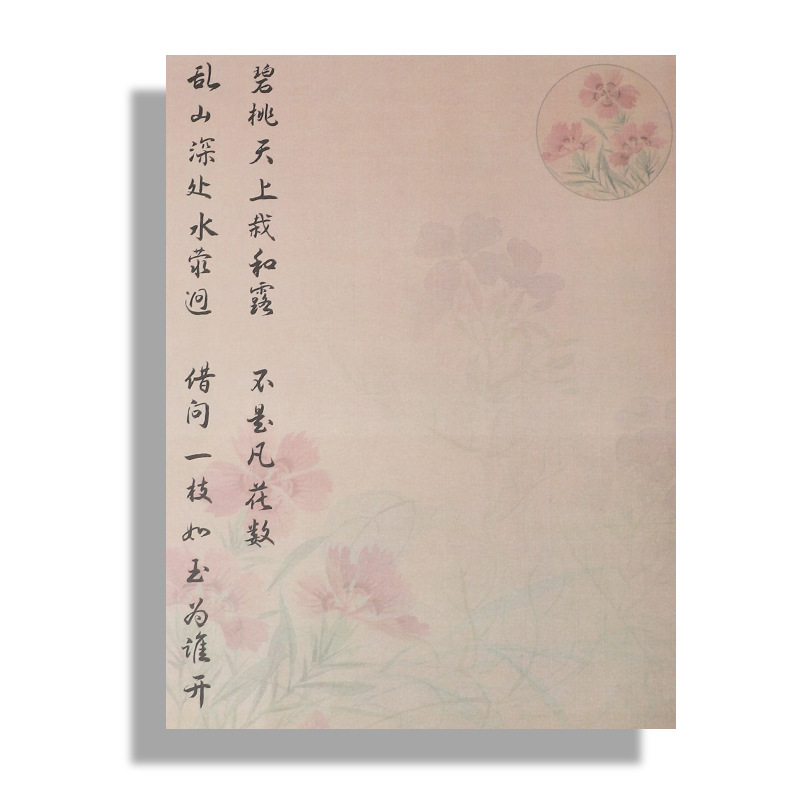 碧桃天上栽和露 不是凡花数
乱山深处水萦迴 借问一枝如玉为谁开